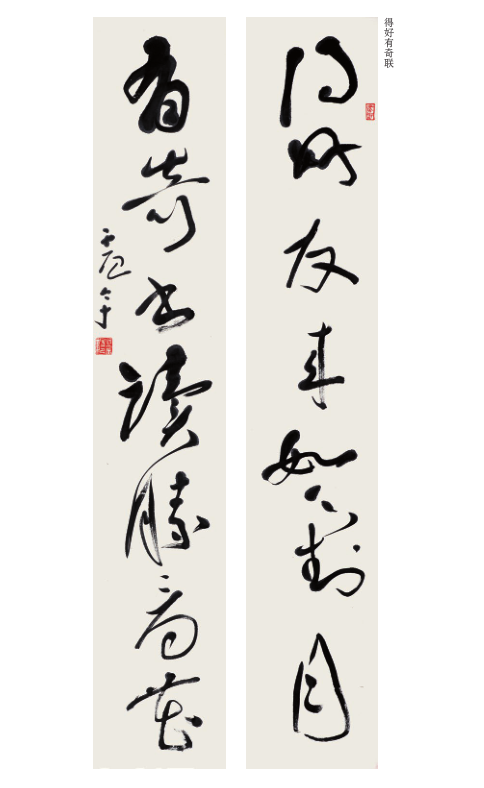 得好有奇联
得好友来如對月
有奇书讀勝看花